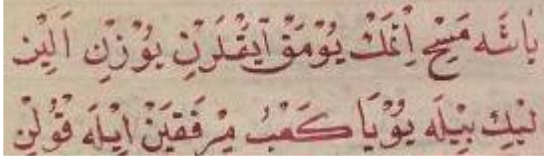 باشه مسح اتمك يومق ايقلرن يوزن الين
ليك بيله يويا كعب مرفقين ايله قولن